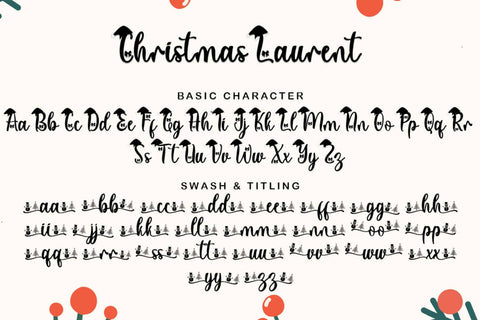 Christmas Laurent
BASIC CHARACTER
Aa Bb Cc Dd Ee Ff Gg Hh Ii Jj Kk Ll Mm Nn Oo Pp Qq Rr
Ss Tt Uu Vv Ww Xx Yy Zz
SWASH & TITLING
aa bb cc dd ee ff gg hh
ii jj kk ll mm nn oo pp
qq rr ss tt uu vv ww xx
yy zz